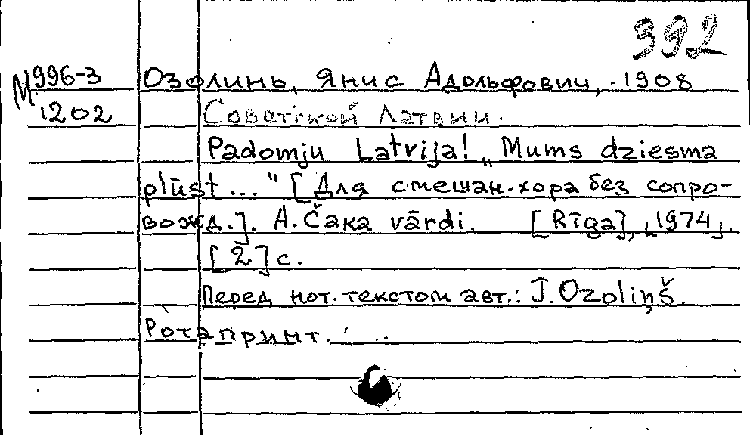 392
М 996-3
1202
Озолинь, Янис Адольфович, 1908
Советской Латвии.
Padomju Latvija! „Mums dziesma
plūst..." [Для смешан. хора без сопро-
вожд.]. A. Čaka vārdi. [Rīga], [1974].
[2] с.
Перед нот. текстом авт.: J. Ozoliņš.
Ротапринт.